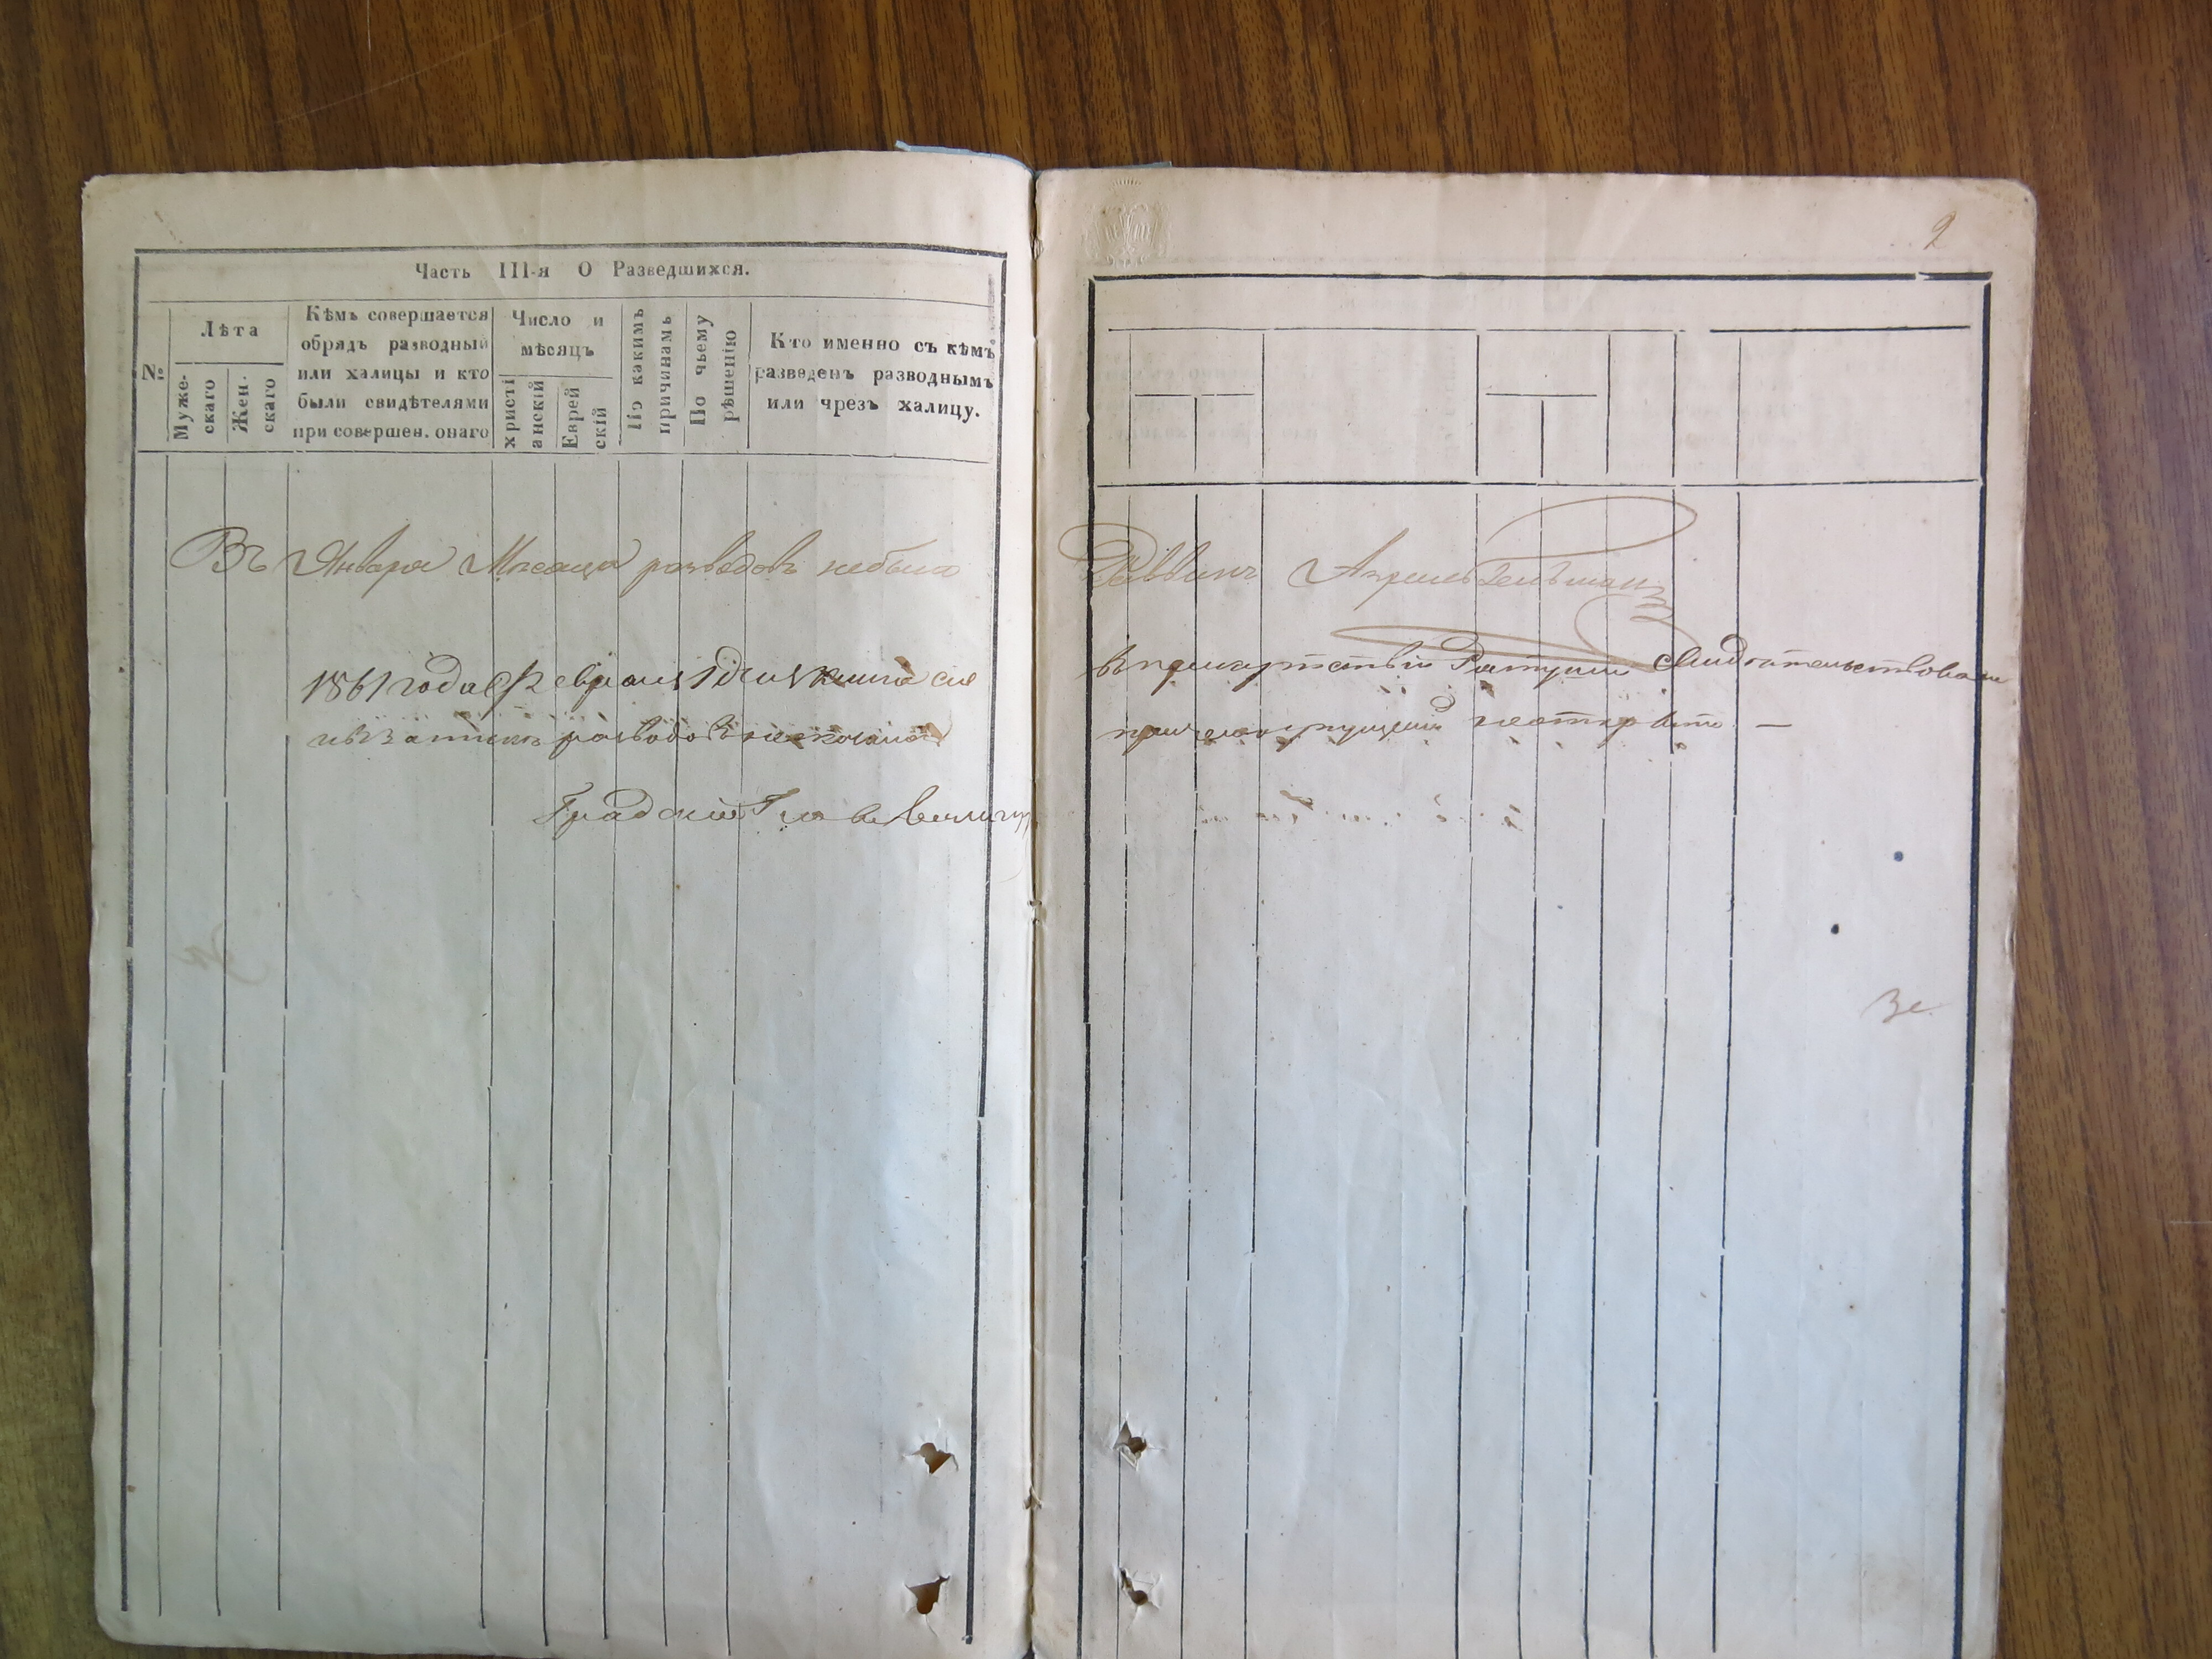 Часть III-я О Разведшихся.
№
Лѣта
Муже-
скаго
Жен.
скаго
Кѣмъ совершается
обрядъ разводный
или халицы и кто
были свидѣтелями
при совершен. онаго
Число и
мѣсяцъ
христі
анскій
Еврей
скій
По какимъ
причинамъ
По чьему
рѣшенію
Кто именно съ кѣмъ
разведенъ разводнымъ
или чрезъ халицу.
Въ Январѣ Мѣсяцѣ разводовъ небыло
1861 года Февраля 1 дня книга сия
разводовъ
Градскій Глава
2
Раввинъ
въ присутствіи Ратуши свидѣтельствована